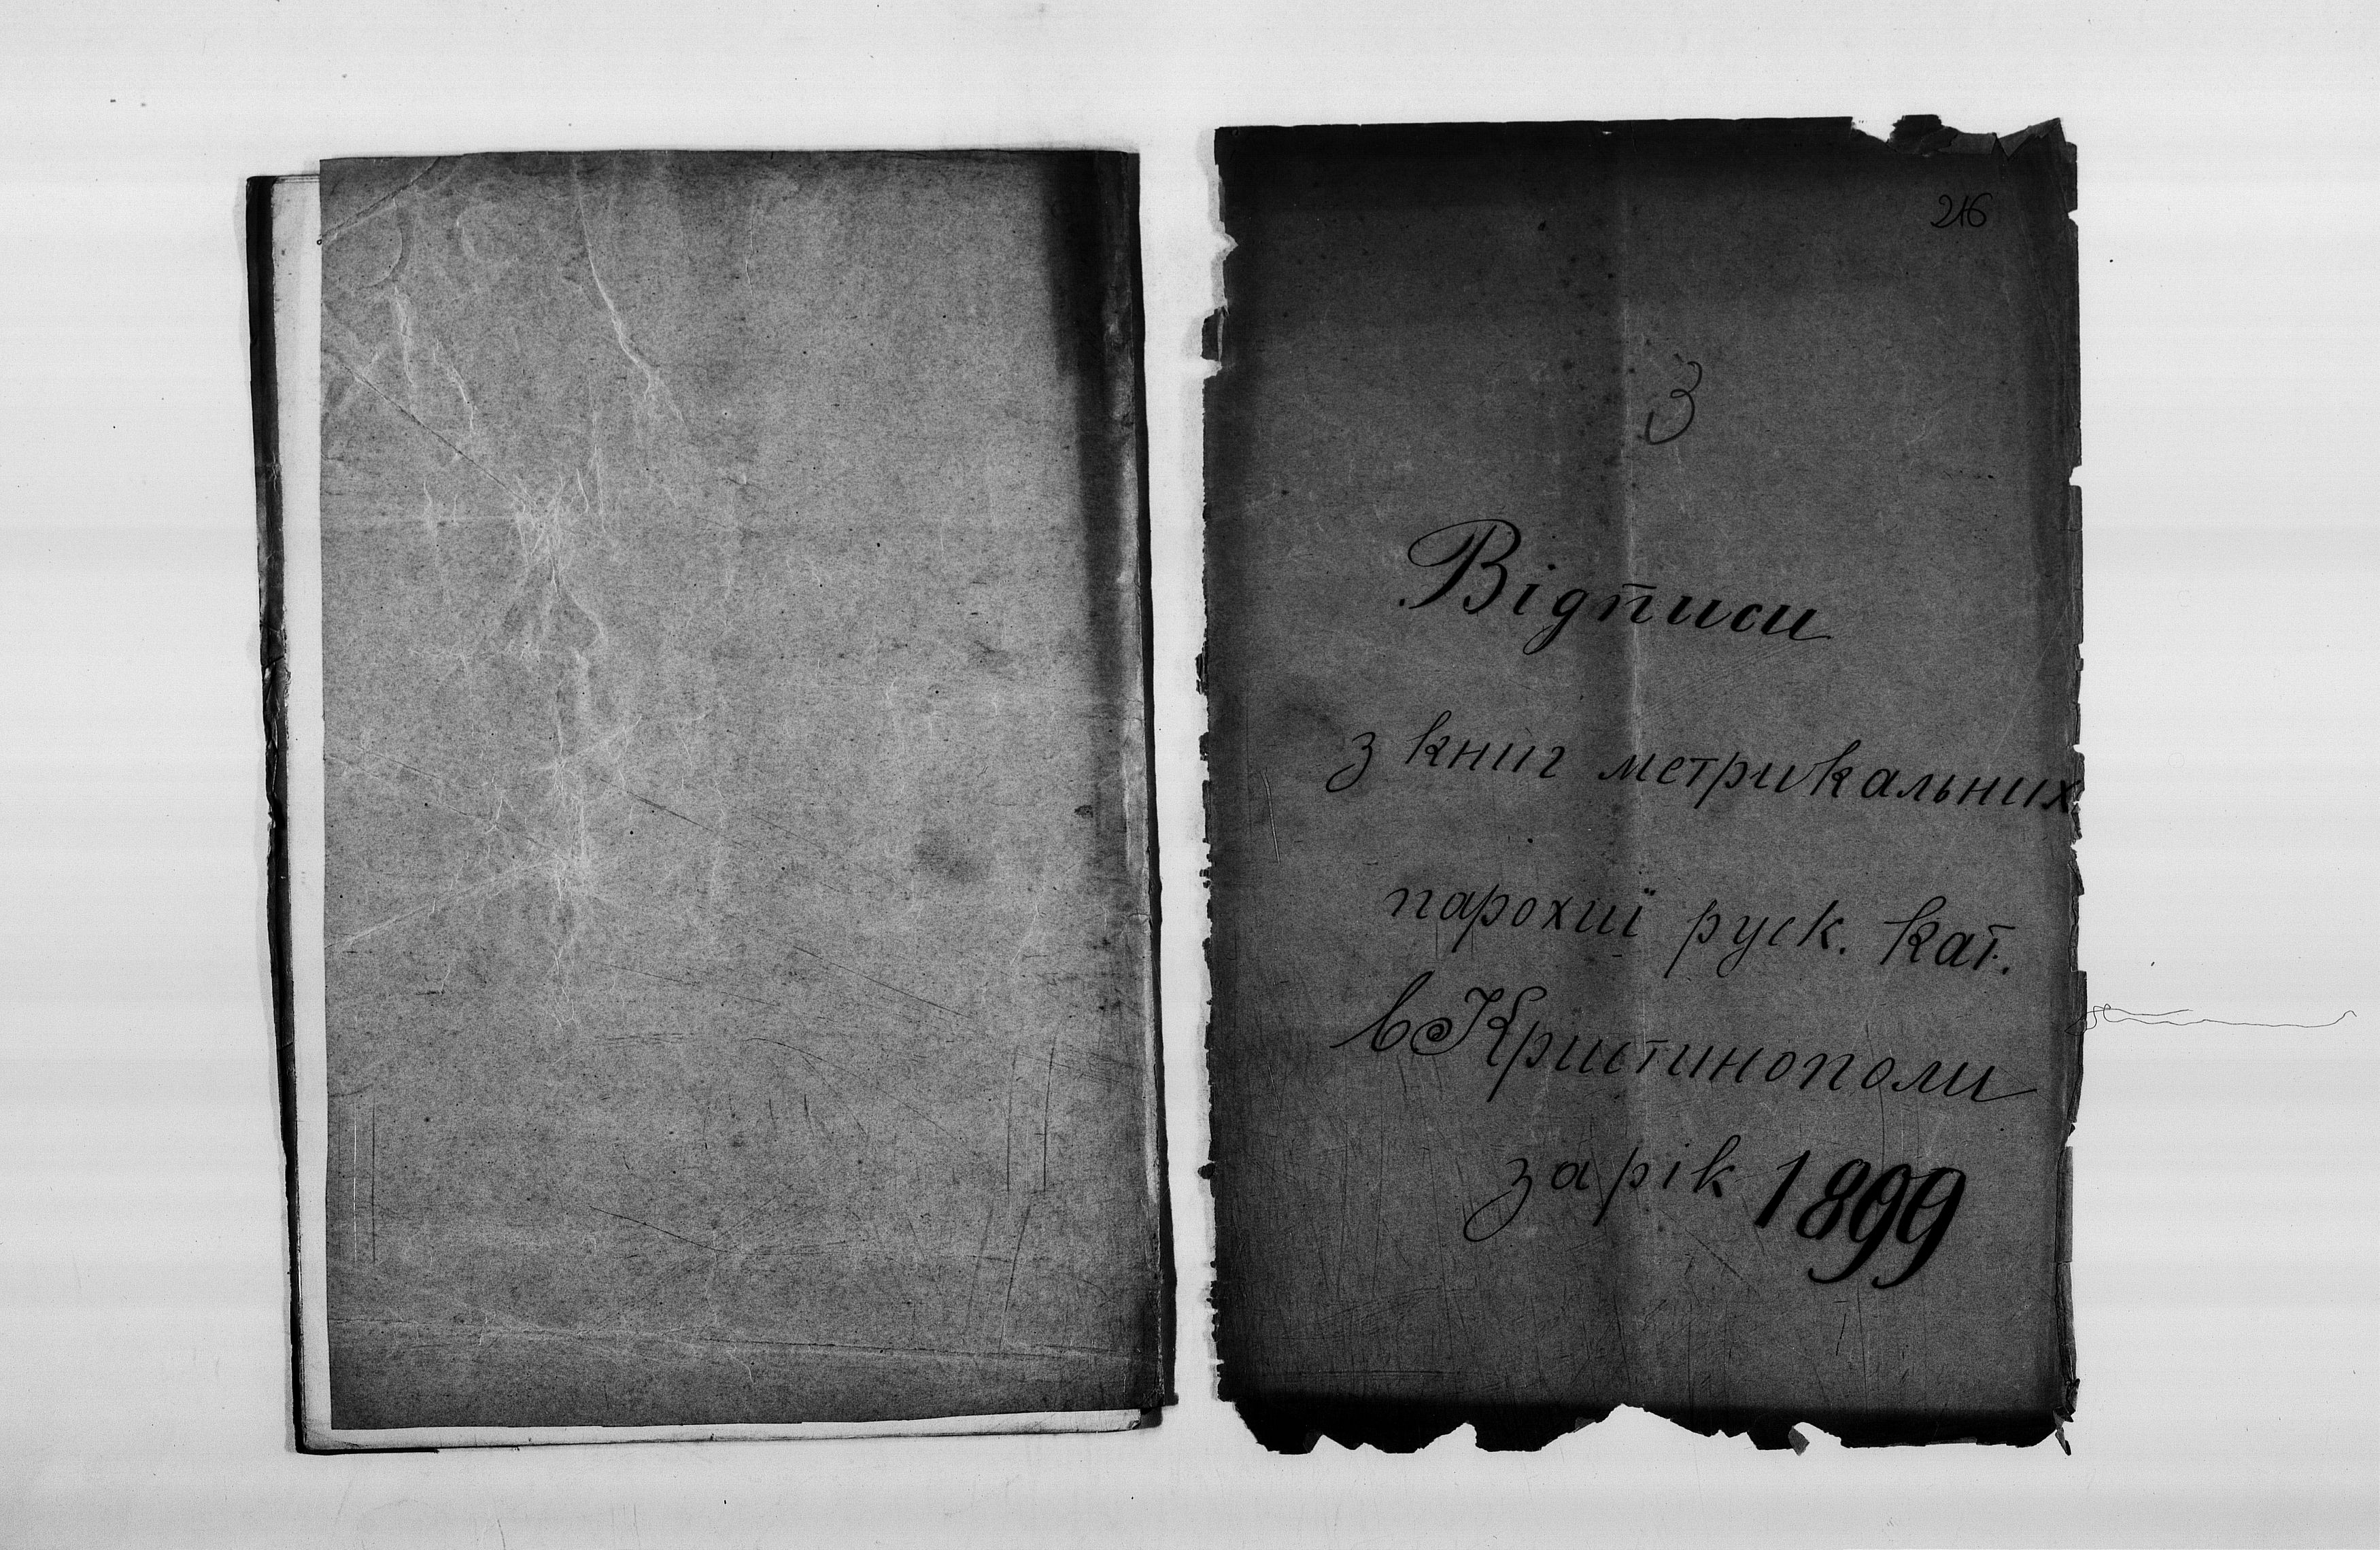 216
3
Відписи
з книг метрикальних
парохиї руск. кат.
в Кристинополи
за рік 1899